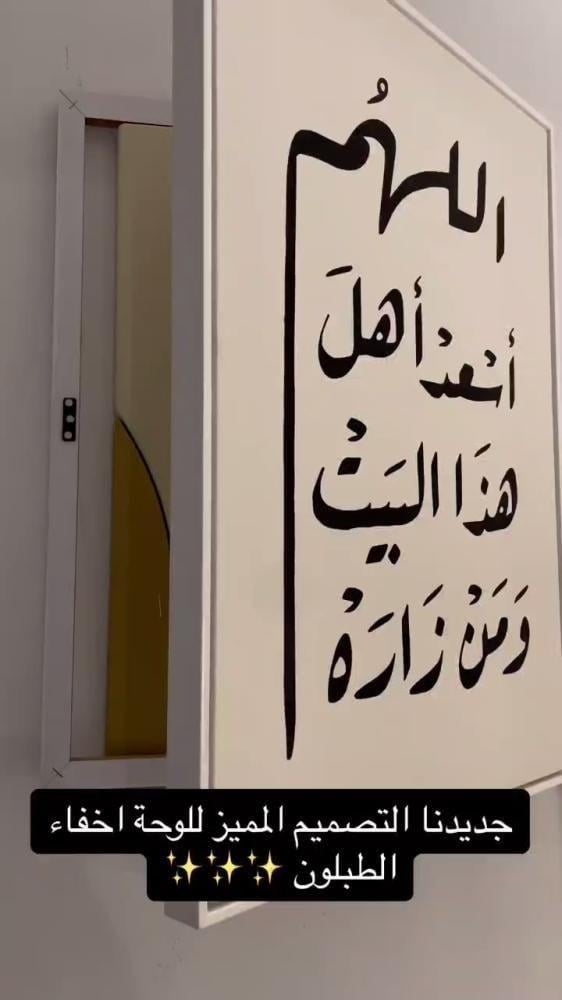 اللهُم
أسْعدْ أهلَ
هذَا البَيَتْ
وَمَنْ زَارَهْ
جديدنا التصميم المميز للوحة اخفاء
الطبلون ✨✨✨